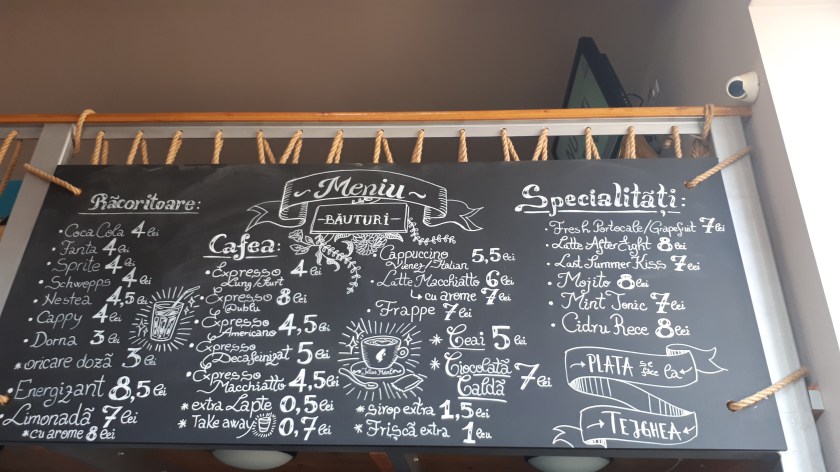 Meniu
BĂUTURI
Răcoritoare:
• Coca Cola 4 lei
• Fanta 4 lei
• Sprite 4 lei
• Schwepps 4 lei
• Nestea 4,5 lei
• Cappy 4 lei
• Dorna 3 lei
* oricare doză 3 lei
• Energizant 8,5 lei
• Limonadă 7 lei
* cu arome 8 lei
Cafea:
• Expresso 4 lei
Lung/Scurt
• Expresso 8 lei
Dublu
• Expresso 4,5 lei
Americano
• Expresso 5 lei
Decafeinizat
• Expresso 4,5 lei
Macchiatto
* extra Lapte 0,5 lei
* Take away 0,7 lei
• Cappuccino 5,5 lei
Vienez/Italian
• Latte Macchiatto 6 lei
cu arome 7 lei
• Frappe 7 lei
* Ceai 5 lei
* Ciocolată
Caldă 7 lei
Julius Meinl
* sirop extra 1,5 lei
* Frișcă extra 1 leu
Specialități:
• Fresh Portocale/Grapefruit 7 lei
• Latte After Eight 8 lei
• Last Summer Kiss 7 lei
• Mojito 8 lei
• Mint Tonic 7 lei
• Cidru Rece 8 lei
PLATA se face la
TEJGHEA